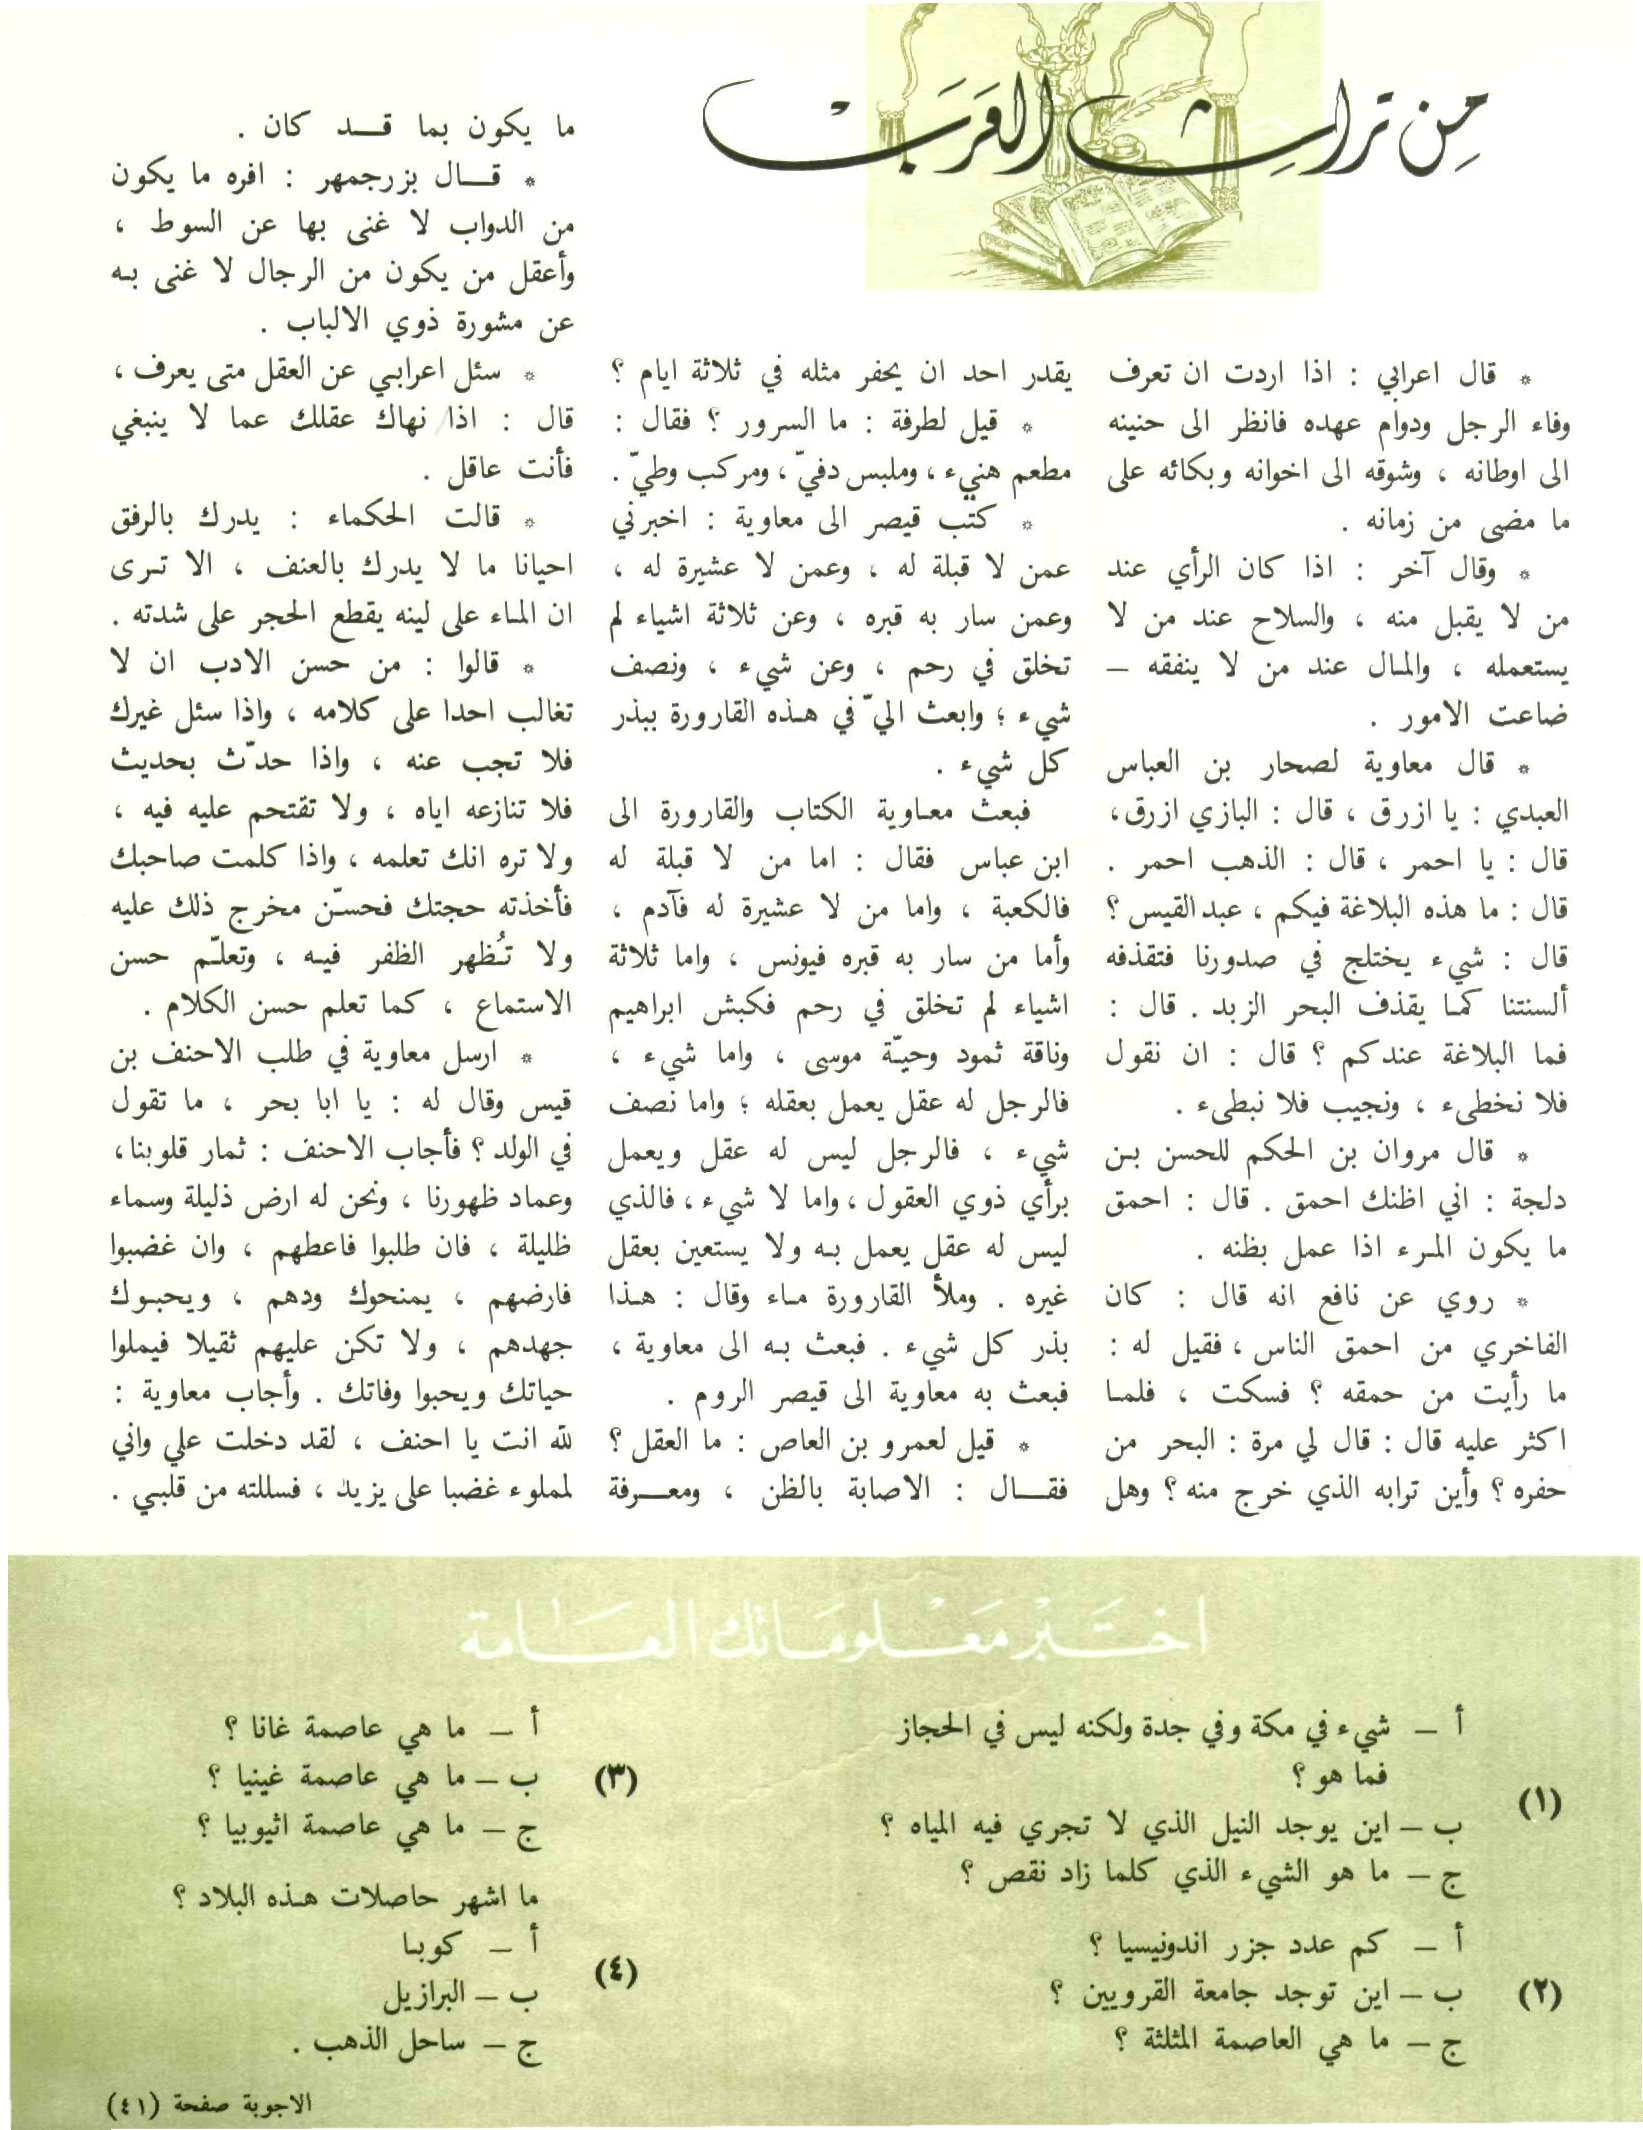 من تراث العرب
* قال اعرابي : اذا اردت ان تعرف
وفاء الرجل ودوام عهده فانظر الى حنينه
الى اوطانه ، وشوقه الى اخوانه وبكائه على
ما مضى من زمانه .
* وقال آخر : اذا كان الرأي عند
من لا يقبل منه ، والسلاح عند من لا
يستعمله ، والمال عند من لا ينفقه –
ضاعت الامور .
* قال معاوية لصحار بن العباس
العبدي : يا ازرق ، قال : البازي ازرق،
قال : يا احمر ، قال : الذهب احمر .
قال : ما هذه البلاغة فيكم ، عبد القيس ؟
قال : شيء يختلج في صدورنا فتقذفه
ألسنتنا كما يقذف البحر الزبد . قال :
فما البلاغة عندكم ؟ قال : ان نقول
فلا نخطىء ، ونجيب فلا نبطىء .
* قال مروان بن الحكم للحسن بن
دلجة : اني اظنك احمق . قال : احمق
ما يكون المرء اذا عمل بظنه .
* روي عن نافع انه قال : كان
الفاخري من احمق الناس ، فقيل له :
ما رأيت من حمقه ؟ فسكت ، فلما
اكثر عليه قال : قال لي مرة : البحر من
حفره ؟ وأين ترابه الذي خرج منه ؟ وهل
يقدر احد ان يحفر مثله في ثلاثة ايام ؟
* قيل لطرفة : ما السرور ؟ فقال :
مطعم هنيء ، وملبس دفيّ ، ومركب وطيّ .
* كتب قيصر الى معاوية : اخبرني
عمن لا قبلة له ، وعمن لا عشيرة له ،
وعمن سار به قبره ، وعن ثلاثة اشياء لم
تخلق في رحم ، وعن شيء ، ونصف
شيء ؛ وابعث اليّ في هذه القارورة ببذر
كل شيء .
فبعث معاوية الكتاب والقارورة الى
ابن عباس فقال : اما من لا قبلة له
فالكعبة ، واما من لا عشيرة له فآدم ،
وأما من سار به قبره فيونس ، واما ثلاثة
اشياء لم تخلق في رحم فكبش ابراهيم
وناقة ثمود وحيّة موسى ، واما شيء ،
فالرجل له عقل يعمل بعقله ؛ واما نصف
شيء ، فالرجل ليس له عقل ويعمل
برأي ذوي العقول ، واما لا شيء ، فالذي
ليس له عقل يعمل به ولا يستعين بعقل
غيره . وملأ القارورة ماء وقال : هذا
بذر كل شيء . فبعث به الى معاوية ،
فبعث به معاوية الى قيصر الروم .
* قيل لعمرو بن العاص : ما العقل ؟
فقال : الاصابة بالظن ، ومعرفة
ما يكون بما قد كان .
* قال بزرجمهر : افره ما يكون
من الدواب لا غنى بها عن السوط ،
وأعقل من يكون من الرجال لا غنى به
عن مشورة ذوي الالباب .
* سئل اعرابي عن العقل متى يعرف ،
قال : اذا نهاك عقلك عما لا ينبغي
فأنت عاقل .
* قالت الحكماء : يدرك بالرفق
احيانا ما لا يدرك بالعنف ، الا ترى
ان الماء على لينه يقطع الحجر على شدته .
* قالوا : من حسن الادب ان لا
تغالب احدا على كلامه ، واذا سئل غيرك
فلا تجب عنه ، واذا حدّث بحديث
فلا تنازعه اياه ، ولا تقتحم عليه فيه ،
ولا تره انك تعلمه ، واذا كلمت صاحبك
فأخذته حجتك فحسّن مخرج ذلك عليه
ولا تُظهر الظفر فيه ، وتعلّم حسن
الاستماع ، كما تعلم حسن الكلام .
* ارسل معاوية في طلب الاحنف بن
قيس وقال له : يا ابا بحر ، ما تقول
في الولد ؟ فأجاب الاحنف : ثمار قلوبنا،
وعماد ظهورنا ، ونحن له ارض ذليلة وسماء
ظليلة ، فان طلبوا فاعطهم ، وان غضبوا
فارضهم ، يمنحوك ودهم ، ويحبوك
جهدهم ، ولا تكن عليهم ثقيلا فيملوا
حياتك ويحبوا وفاتك . وأجاب معاوية :
لله انت يا احنف ، لقد دخلت علي واني
لمملوء غضبا على يزيد ، فسللته من قلبي .
اختبر معلوماتك العامة
(١)
أ – شيء في مكة وفي جدة ولكنه ليس في الحجاز
فما هو ؟
ب – اين يوجد النيل الذي لا تجري فيه المياه ؟
ج – ما هو الشيء الذي كلما زاد نقص ؟
(٢)
أ – كم عدد جزر اندونيسيا ؟
ب – اين توجد جامعة القرويين ؟
ج – ما هي العاصمة المثلثة ؟
(٣)
أ – ما هي عاصمة غانا ؟
ب – ما هي عاصمة غينيا ؟
ج – ما هي عاصمة اثيوبيا ؟
(٤)
ما اشهر حاصلات هذه البلاد ؟
أ – كوبا
ب – البرازيل
ج – ساحل الذهب .
الاجوبة صفحة (٤١)